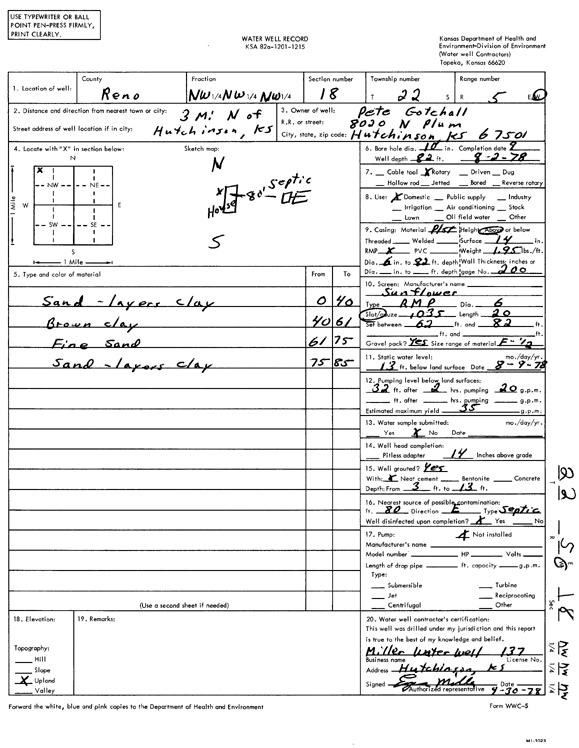 USE TYPEWRITER OR BALL
POINT PEN-PRESS FIRMLY,
PRINT CLEARLY.
WATER WELL RECORD
KSA 82a-1201-1215
Kansas Department of Health and
Environment-Division of Environment
(Water well Contractors)
Topeka, Kansas 66620
1. Location of well:
County
Reno
Fraction
NW 1/4 NW 1/4 NW 1/4
Section number
18
Township number
T 22 S
Range number
R 5 E/W
2. Distance and direction from nearest town or city: 3 Mi N of
Street address of well location if in city: Hutchinson, KS
3. Owner of well: Pete Gotchall
R.R. or street: 8020 N Plum
City, state, zip code: Hutchinson KS 67501
4. Locate with "X" in section below:
N
X
NW NE
W E
SW SE
S
1 Mile
1 Mile
Sketch map:
N
X
House
80' Septic
S
6. Bore hole dia. 10 in. Completion date 9
Well depth 82 ft. 8-2-78
7. Cable tool X Rotary Driven Dug
Hollow rod Jetted Bored Reverse rotary
8. Use: X Domestic Public supply Industry
Irrigation Air conditioning Stock
Lawn Oil field water Other
9. Casing: Material Plst Height: Above or below
Threaded Welded Surface 14 in.
RMP X PVC Weight 1.95 lbs./ft.
Dia. 6 in. to 82 ft. depth Wall Thickness: inches or
Dia. in. to ft. depth gage No. 200
10. Screen: Manufacturer's name
Sunflower
Type RMP Dia. 6
Slot/gauze .035 Length 20
Set between 62 ft. and 82 ft.
ft. and ft.
Gravel pack? Yes Size range of material F-1/2
5. Type and color of material From To
Sand - layers clay 0 40
Brown clay 40 61
Fine Sand 61 75
Sand - layers clay 75 85
11. Static water level: mo./day/yr.
13 ft. below land surface Date 8-9-78
12. Pumping level below land surfaces:
32 ft. after 2 hrs. pumping 20 g.p.m.
ft. after hrs. pumping g.p.m.
Estimated maximum yield 35 g.p.m.
13. Water sample submitted: mo./day/yr.
Yes X No Date
14. Well head completion:
Pitless adapter 14 Inches above grade
15. Well grouted? Yes
With: X Neat cement Bentonite Concrete
Depth: From 3 ft. to 13 ft.
16. Nearest source of possible contamination:
ft. 80 Direction E Type Septic
Well disinfected upon completion? X Yes No
17. Pump: X Not installed
Manufacturer's name
Model number HP Volts
Length of drop pipe ft. capacity g.p.m.
Type:
Submersible Turbine
Jet Reciprocating
Centrifugal Other
(Use a second sheet if needed)
18. Elevation:
Topography:
Hill
Slope
X Upland
Valley
19. Remarks:
20. Water well contractor's certification:
This well was drilled under my jurisdiction and this report
is true to the best of my knowledge and belief.
Miller Water well 137
Business name License No.
Address Hutchinson, KS
Signed Date 9-30-78
Authorized representative
Forward the white, blue and pink copies to the Department of Health and Environment
Form WWC-5
Sec 18
NW 1/4 NW 1/4 NW 1/4